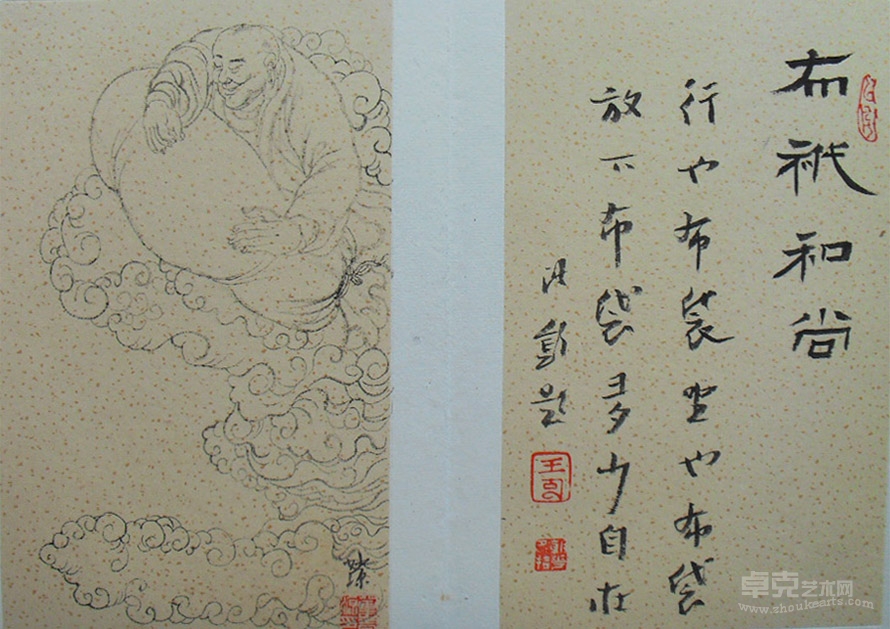 布袋和尚
行也布袋坐也布袋
放下布袋多少自在
题
卓克艺术网
www.zhoukearts.com